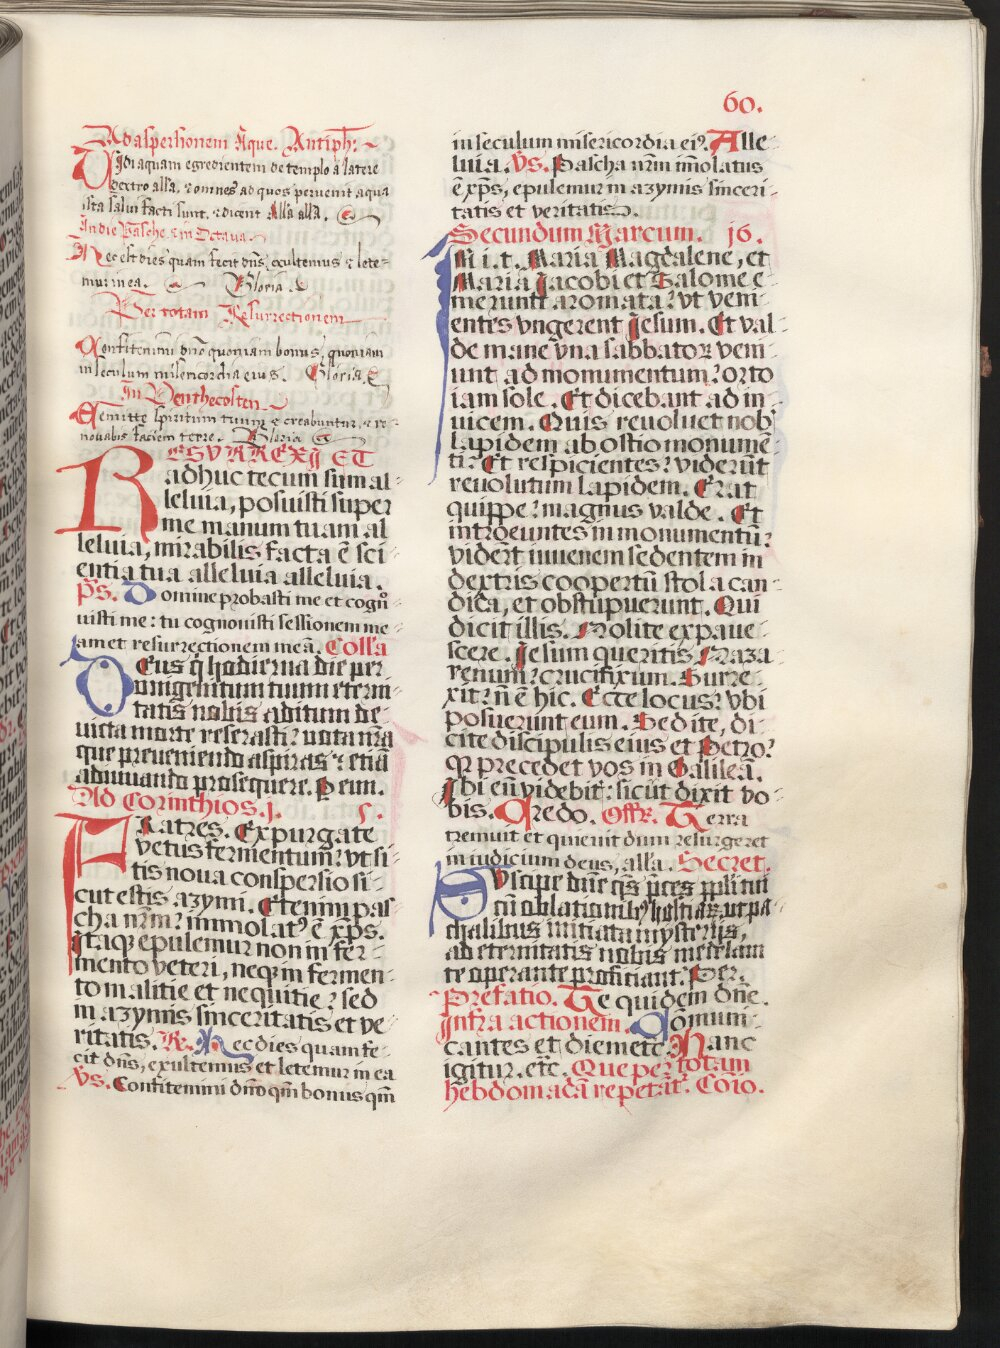 60.
Ad aspersionem Aque. Antiph:
Vidi aquam egredientem de templo a latere
dextro alla. ⁊ omnes ad quos pervenit aqua
ista salui facti sunt. ⁊ dicent Alla alla.
In die Pasche ⁊ in Octava.
Hec est dies quam fecit dñs, exultemus ⁊ lete-
mur in ea. Gloria.
Per totam Resurrectionem
Confitemini dño quoniam bonus, quoniam
in seculum misericordia eius. Gloria.
In Penthecosten
Emitte spiritum tuum ⁊ creabuntur, ⁊ re-
novabis faciem terre. Gloria
RESVRREXI ET
adhuc tecum sum al-
leluia, posuisti super
me manum tuam al
leluia, mirabilis facta ē sci-
entia tua alleluia alleluia.
Ps. Domine probasti me et cogno-
uisti me: tu cognouisti sessionem me-
am et resurrectionem meā. Colla
Deus q̄ hodierna die per
vnigenitum tuum eterni-
tatis nobis aditum de-
uicta morte reserasti: uota nr̄a
que preueniendo aspiras: etiā
adiuuando prosequere. Per eum.
Ad Corinthios. j. 5.
Fratres. Expurgate
vetus fermentum: vt si-
tis noua conspersio si-
cut estis azymi. Etenim pas-
cha nr̄m: immolatꝰ ē xp̄s.
Itaqꝫ epulemur non in fer-
mento veteri, neqꝫ in fermen-
to malitie et nequitie: sed
in azymis sinceritatis et ve-
ritatis. R. Hec dies quam fe-
cit dñs, exultemus et letemur in ea
Vs. Confitemini dño qm̄ bonus qm̄
in seculum misericordia eiꝰ. Alle-
luia. Vs. Pascha nr̄m īmolatus
ē xp̄s, epulemur in azymis sinceri-
tatis et veritatis.
Secundum Marcum. j6.
In i. t. Maria Magdalene, et
Maria Jacobi et Salome e-
merunt aromata: vt veni-
entes vngerent Jesum. Et val-
de mane vna sabbatoꝝ veni-
unt ad monumentum: orto
iam sole. Et dicebant ad in-
uicem. Quis reuoluet nobꝭ
lapidem ab ostio monumē-
ti: Et respicientes: viderūt
reuolutum lapidem. Erat
quippe: magnus valde. Et
introeuntes in monumentū:
viderūt iuuenem sedentem in
dextris coopertū stola can-
dida, et obstupuerunt. Qui
dicit illis. Nolite expaue-
scere. Jesum queritis Naza-
renum: crucifixum. Surre-
xit: nō ē hic. Ecce locus: vbi
posuerunt eum. Sed ite, di-
cite discipulis eius et Petro:
qꝛ precedet vos in Galileā.
Ibi eū videbit: sicut dixit vo-
bis. Credo. Offr. Terra
tremuit et quieuit dum resurgeret
in iudicium deus, alla. Secret.
Suscipe dn̄e q̄s p̄ces ppl̄i tui
cū oblationibꝰ hostiaꝝ, ut pa-
schalibus initiata mysteriis,
ad eternitatis nobis medelam
te operante proficiant. Per.
Prefatio. Te quidem dn̄e.
Infra actionem. Cōmuni-
cantes et diem etc. Hanc
igitur. etc. Que per totam
hebdomadā repetāt. Cōio.